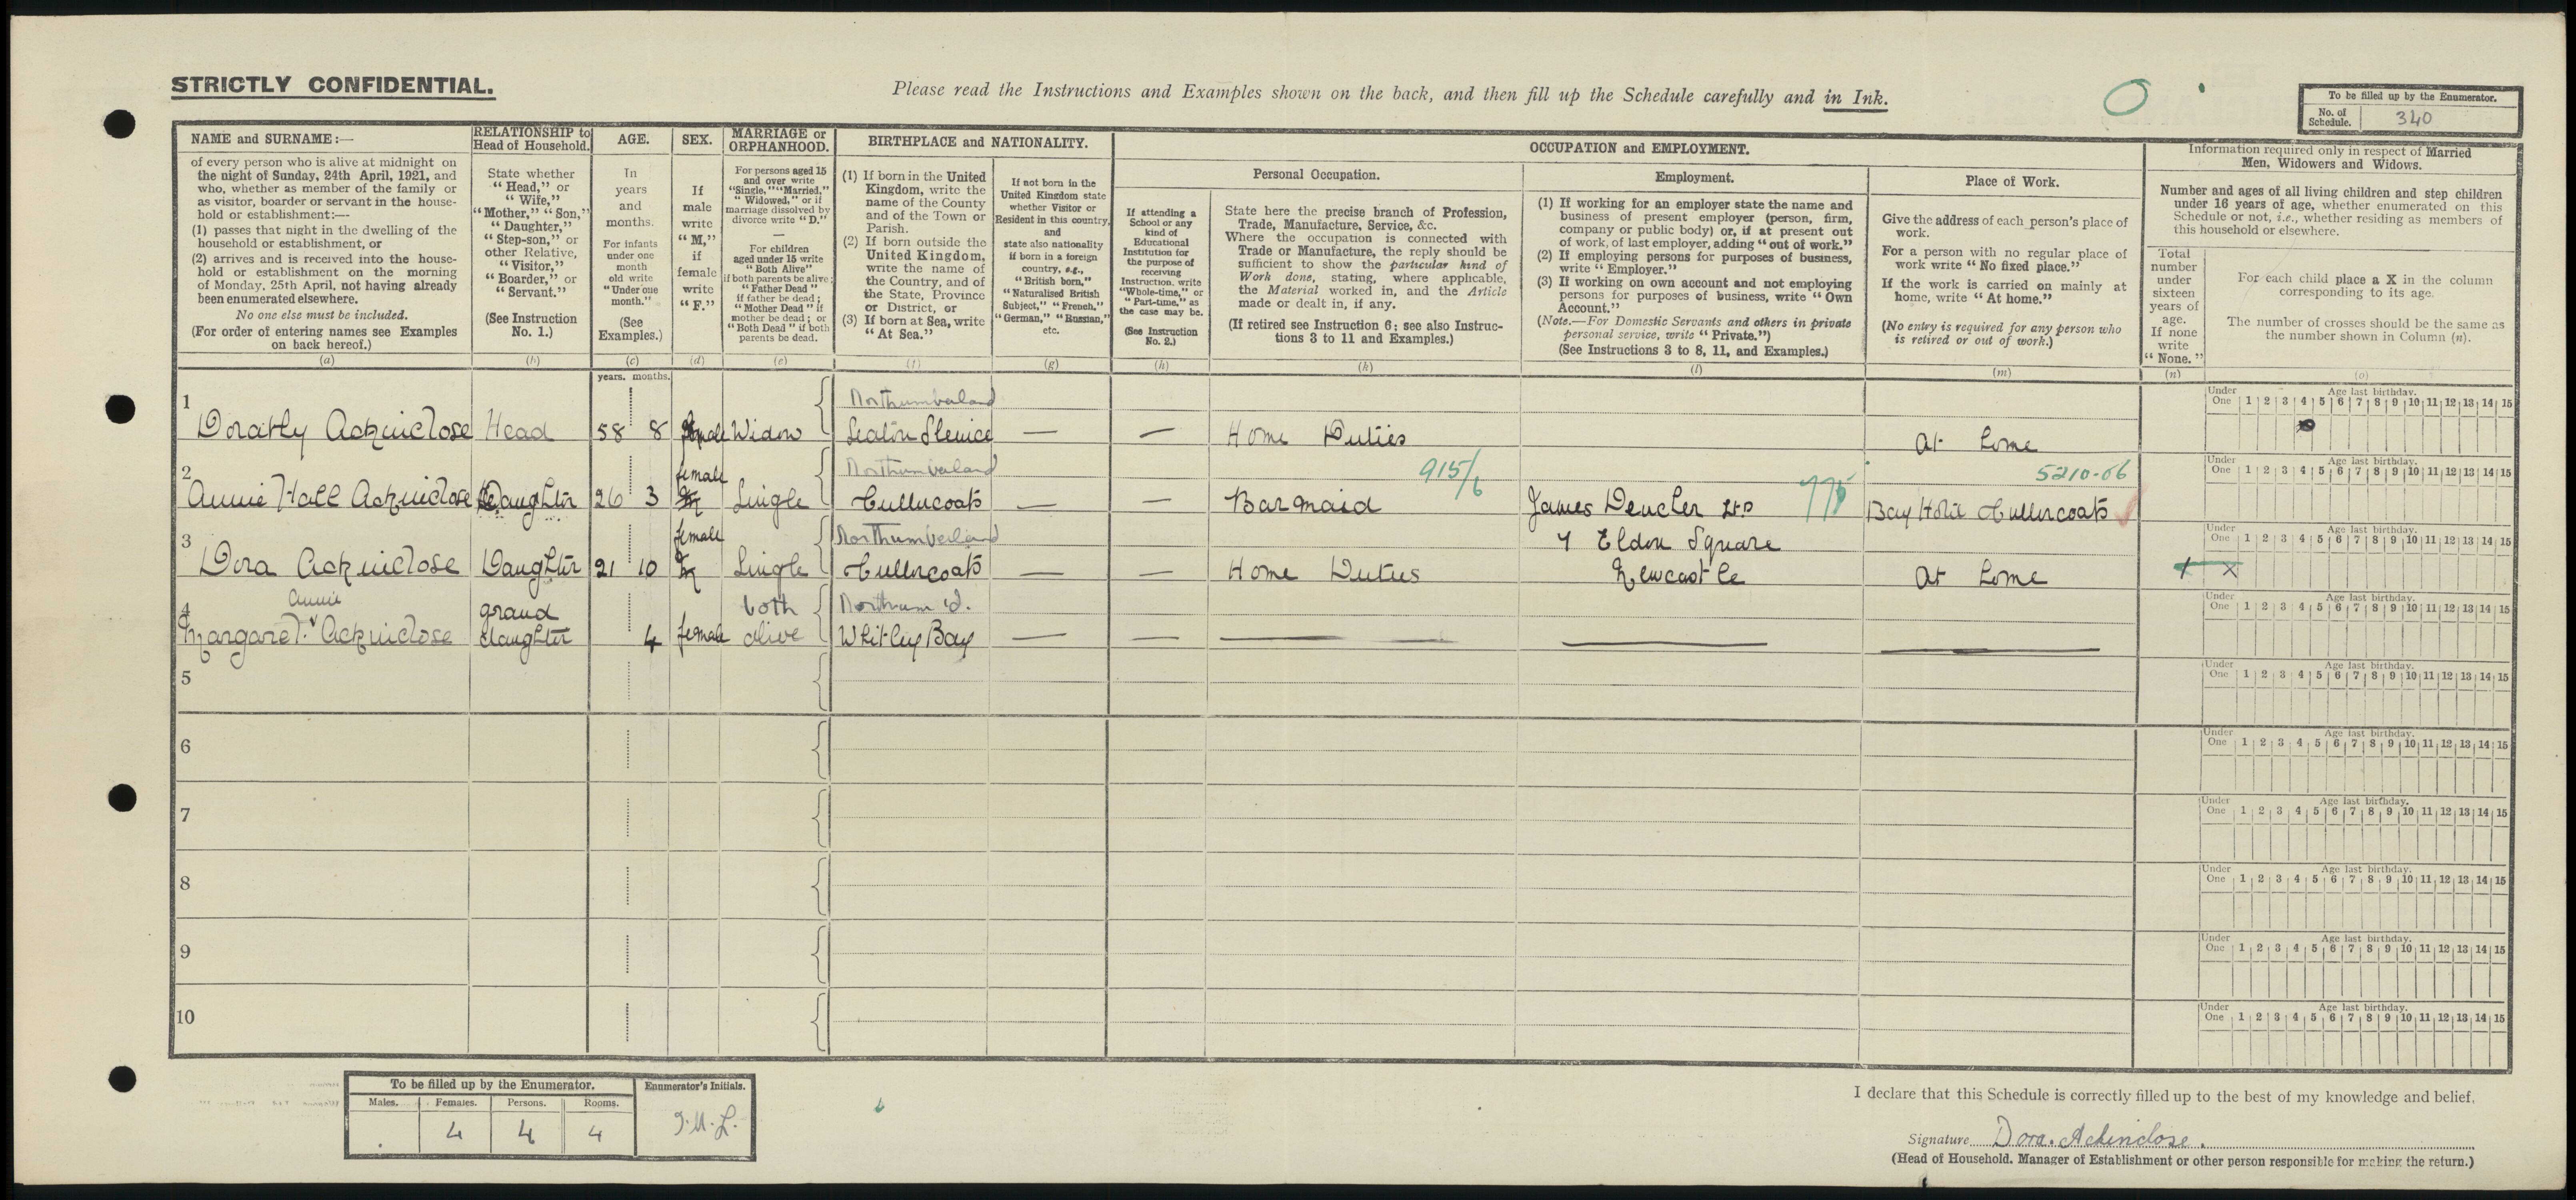 STRICTLY CONFIDENTIAL.
Please read the Instructions and Examples shown on the back, and then fill up the Schedule carefully and in Ink.
To be filled up by the Enumerator.
No. of Schedule. 340
NAME and SURNAME:—
of every person who is alive at midnight on
the night of Sunday, 24th April, 1921, and
who, whether as member of the family or
as visitor, boarder or servant in the house-
hold or establishment:—
(1) passes that night in the dwelling of the
household or establishment, or
(2) arrives and is received into the house-
hold or establishment on the morning
of Monday, 25th April, not having already
been enumerated elsewhere.
No one else must be included.
(For order of entering names see Examples
on back hereof.)
(a)
RELATIONSHIP to
Head of Household.
State whether
"Head," or
"Wife,"
"Mother," "Son,"
"Daughter,"
"Step-son," or
other Relative,
"Visitor,"
"Boarder," or
"Servant."
(See Instruction
No. 1.)
(b)
AGE.
In
years
and
months.
For infants
under one
month
old write
"Under one
month."
(See
Examples.)
(c)
SEX.
If
male
write
"M,"
if
female
write
"F."
(d)
MARRIAGE or
ORPHANHOOD.
For persons aged 15
and over write
"Single," "Married,"
"Widowed," or if
marriage dissolved by
divorce write "D."
—
For children
aged under 15 write
"Both Alive"
if both parents be alive;
"Father Dead"
if father be dead;
"Mother Dead" if
mother be dead; or
"Both Dead" if both
parents be dead.
(e)
BIRTHPLACE and NATIONALITY.
(1) If born in the United
Kingdom, write the
name of the County
and of the Town or
Parish.
(2) If born outside the
United Kingdom,
write the name of
the Country, and of
the State, Province
or District, or
(3) If born at Sea, write
"At Sea."
(f)
If not born in the
United Kingdom state
whether Visitor or
Resident in this country,
and
state also nationality
if born in a foreign
country, e.g.,
"British born,"
"Naturalised British
Subject," "French,"
"German," "Russian,"
etc.
(g)
OCCUPATION and EMPLOYMENT.
If attending a
School or any
kind of
Educational
Institution for
the purpose of
receiving
Instruction, write
"Whole-time," or
"Part-time," as
the case may be.
(See Instruction
No. 2.)
(h)
Personal Occupation.
State here the precise branch of Profession,
Trade, Manufacture, Service, &c.
Where the occupation is connected with
Trade or Manufacture, the reply should be
sufficient to show the particular kind of
Work done, stating, where applicable,
the Material worked in, and the Article
made or dealt in, if any.
(If retired see Instruction 6; see also Instruc-
tions 3 to 11 and Examples.)
(k)
Employment.
(1) If working for an employer state the name and
business of present employer (person, firm,
company or public body) or, if at present out
of work, of last employer, adding "out of work."
(2) If employing persons for purposes of business,
write "Employer."
(3) If working on own account and not employing
persons for purposes of business, write "Own
Account."
(Note.—For Domestic Servants and others in private
personal service, write "Private.")
(See Instructions 3 to 8, 11, and Examples.)
(l)
Place of Work.
Give the address of each person's place of
work.
For a person with no regular place of
work write "No fixed place."
If the work is carried on mainly at
home, write "At home."
(No entry is required for any person who
is retired or out of work.)
(m)
Information required only in respect of Married
Men, Widowers and Widows.
Number and ages of all living children and step children
under 16 years of age, whether enumerated on this
Schedule or not, i.e., whether residing as members of
this household or elsewhere.
Total
number
under
sixteen
years of
age.
If none
write
"None."
(n)
For each child place a X in the column
corresponding to its age.
The number of crosses should be the same as
the number shown in Column (n).
(o)
years. months.
Under One Age last birthday. 1 2 3 4 5 6 7 8 9 10 11 12 13 14 15
1 Northumberland
Dorathy Ackinclose Head 58 8 female Widow — — Home Duties At home
Under One Age last birthday. 1 2 3 4 5 6 7 8 9 10 11 12 13 14 15
2 female Northumberland 915/6 5210-06
Annie Hall Ackinclose Daughter 26 3 Single Cullercoats — — Barmaid James Deuchar Ltd 775 Bay Hotel Cullercoats
Under One Age last birthday. 1 2 3 4 5 6 7 8 9 10 11 12 13 14 15
3 female Northumberland 7 Eldon Square
Dora Ackinclose Daughter 21 10 Single Cullercoats — — Home Duties Newcastle At home X
Under One Age last birthday. 1 2 3 4 5 6 7 8 9 10 11 12 13 14 15
4 Annie grand both Northum'd.
Margaret Ackinclose daughter 4 female alive Whitley Bay — — — — —
Under One Age last birthday. 1 2 3 4 5 6 7 8 9 10 11 12 13 14 15
5
Under One Age last birthday. 1 2 3 4 5 6 7 8 9 10 11 12 13 14 15
6
Under One Age last birthday. 1 2 3 4 5 6 7 8 9 10 11 12 13 14 15
7
Under One Age last birthday. 1 2 3 4 5 6 7 8 9 10 11 12 13 14 15
8
Under One Age last birthday. 1 2 3 4 5 6 7 8 9 10 11 12 13 14 15
9
Under One Age last birthday. 1 2 3 4 5 6 7 8 9 10 11 12 13 14 15
10
To be filled up by the Enumerator.
Males. Females. Persons. Rooms.
4 4 4
Enumerator's Initials.
I declare that this Schedule is correctly filled up to the best of my knowledge and belief,
Signature Dora. Ackinclose.
(Head of Household, Manager of Establishment or other person responsible for making the return.)